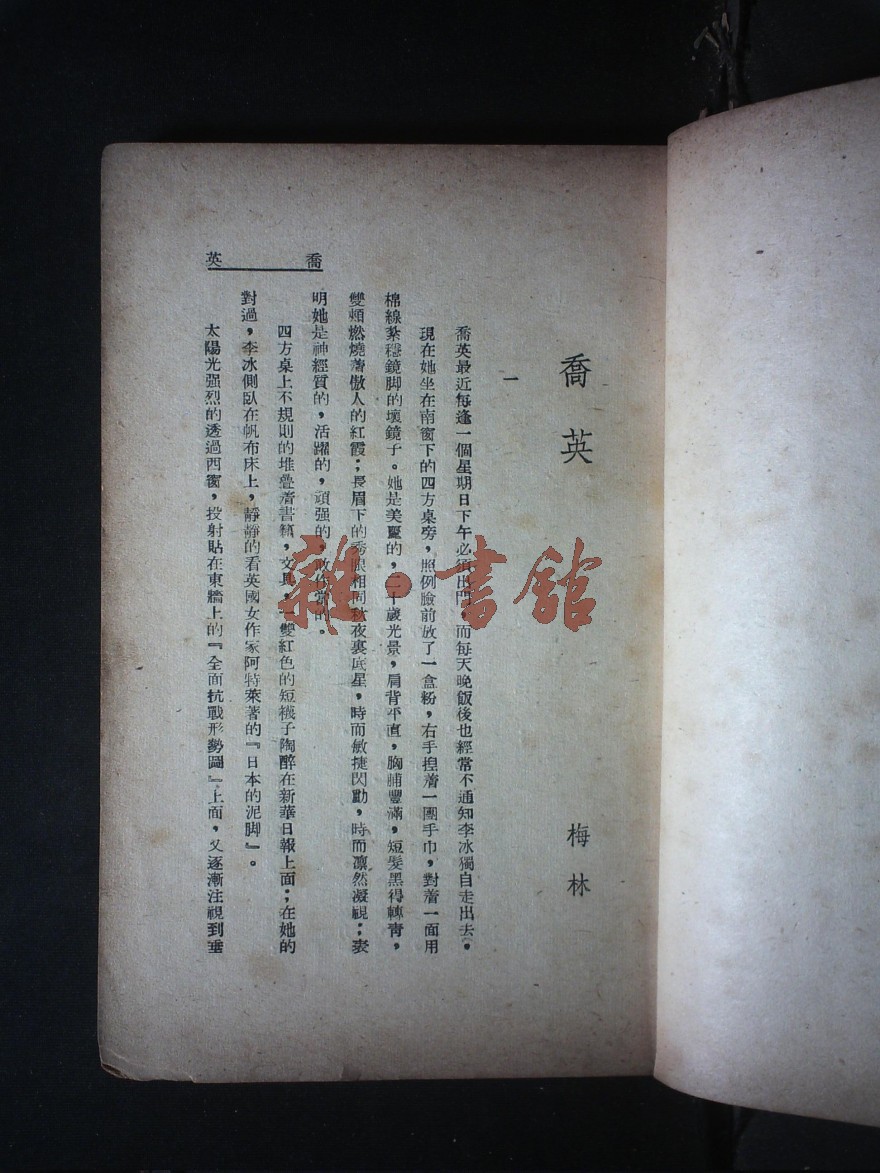 喬英
梅林
一
喬英最近每逢一個星期日下午必須出門，而每天晚飯後也經常不通知李冰獨自走出去。
現在她坐在南窗下的四方桌旁，照例臉前放了一盒粉，右手揑着一團手巾，對着一面用
棉線紮穩鏡脚的壞鏡子。她是美麗的，二十歲光景，肩背平直，胸脯豐滿，短髮黑得轉靑，
雙頰燃燒着傲人的紅霞；長眉下的秀眼相同秋夜裏底星，時而敏捷閃動，時而凛然凝視；表
明她是神經質的，活躍的，頑强的，
四方桌上不規則的堆疊着書籍，文具，一雙紅色的短襪子陶醉在新華日報上面；在她的
對過，李冰側臥在帆布床上，靜靜的看英國女作家阿特萊著的『日本的泥脚』。
太陽光强烈的透過西窗，投射貼在東牆上的『全面抗戰形勢圖』上面，又逐漸注視到垂
喬英
雜·書館